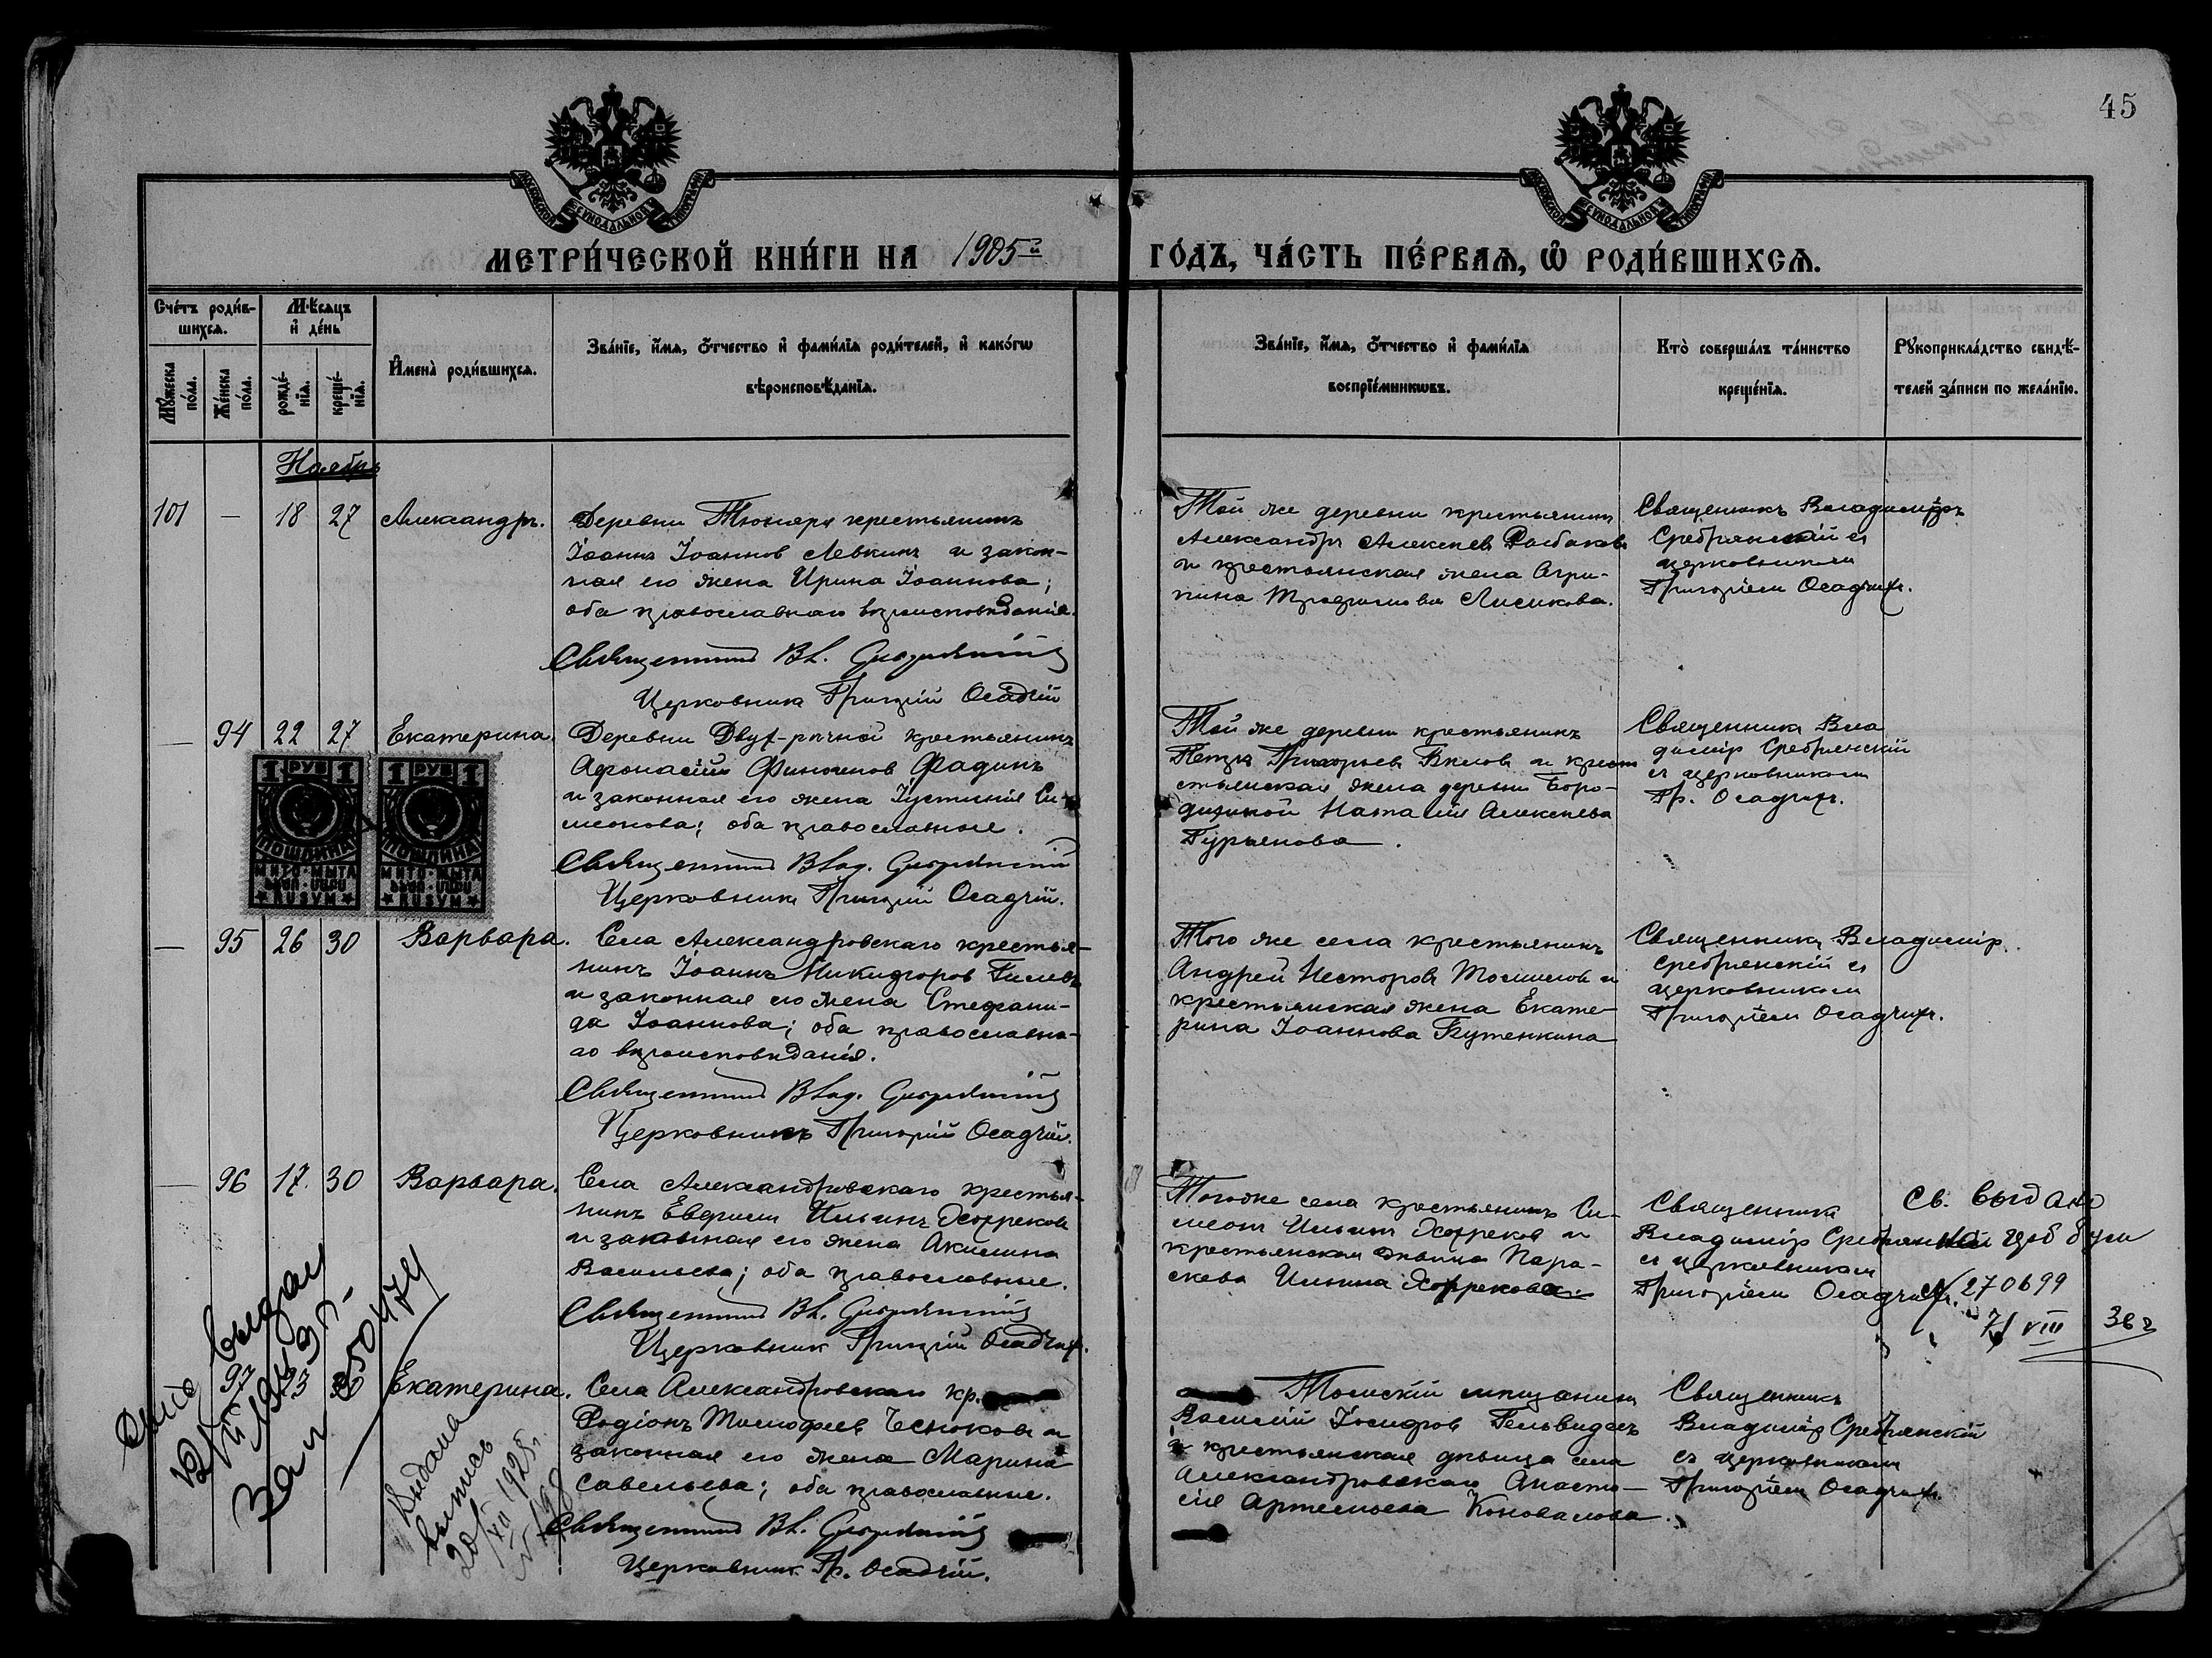 45
МОСКОВСКОЙ СѴНОДАЛЬНОЙ ТИПОГРАФІИ
МОСКОВСКОЙ СѴНОДАЛЬНОЙ ТИПОГРАФІИ
МЕТРИ́ЧЕСКОЙ КНИ́ГИ НА 1905й ГО́ДЪ, ЧА́СТЬ ПЕ́РВАѦ, Ѡ҆ РОДИ́ВШИХСѦ.
Сче́тъ роди́в-
шихсѧ.
Мѣ́сѧцъ
и҆ де́нь
И҆мена̀ роди́вшихсѧ.
Зва́нїе, и҆́мѧ, ѻ҆́тчество и҆ фами́лїѧ роди́телей, и҆ како́гѡ
вѣроисповѣ́данїѧ.
Зва́нїе, и҆́мѧ, ѻ҆́тчество и҆ фами́лїѧ
воспрїе́мникѡвъ.
Кто̀ соверша́лъ та́инство
креще́нїѧ.
Рꙋкоприкла́дство свидѣ́-
телей за́писи по жела́нїю.
Мꙋ́жеска
по́ла.
Же́нска
по́ла.
рожде́-
нїѧ.
креще́-
нїѧ.
Ноябрь
101 — 18 27 Александръ.
Деревни крестьянинъ
Іоаннъ Іоаннов Левкинъ и закон-
ная его жена Ирина Іоаннова;
оба православнаго вѣроисповѣданія.
Священникъ Вл. Сребрянскій
Церковникъ Григорій Осадчій
Той же деревни крестьянинъ
Александръ Алексѣев
и крестьянская жена Агри-
пина Лисикова.
Священникъ Владиміръ
Сребрянскій съ
церковникомъ
Григоріем Осадчимъ.
— 94 22 27 Екатерина.
Деревни Двух-рѣчной крестьянинъ
Афонасій Финогенов Фадинъ
и законная его жена Іустинія Си-
меонова; оба православные.
Священникъ Влад. Сребрянскій
Церковникъ Григорій Осадчій.
Той же деревни крестьянинъ
Петръ Григорьев Бѣлов и крест
стьянская жена деревни Боро-
динкой Наталія Алексѣева
Гурьянова.
Священникъ Вла
диміръ Сребрянскій
съ церковникомъ
Гр. Осадчимъ.
1 РУБ 1
ПОШЛИНА
МИТО · МЫТА
RUSYM
1 РУБ 1
ПОШЛИНА
МИТО · МЫТА
RUSYM
— 95 26 30 Варвара.
Села Александровскаго крестья-
нинъ Іоаннъ Никифоров Гилевъ
и законная его жена Стефани-
да Іоаннова; оба православна-
го вѣроисповѣданія.
Священникъ Влад. Сребрянскій
Церковникъ Григорій Осадчій.
Того же села крестьянинъ
Андрей Несторов и
крестьянская жена Екате-
рина Іоаннова Бутенкина
Священникъ Владиміръ
Сребрянскій съ
церковникомъ
Григоріем Осадчимъ.
— 96 17 30 Варвара.
Села Александровскаго крестья-
нинъ Евфимій Ильинъ Хорреков
и законная его жена Акилина
Васильева; оба православные.
Священникъ Вл. Сребрянскій
Церковникъ Григорій Осадчій.
Того же села крестьянинъ Си-
меонъ Ильинъ Хорреков и
крестьянская дѣвица Пара-
скева Ильина Хоррекова.
Священникъ
Владиміръ Сребрянскій
съ церковникомъ
Григоріем Осадчимъ.
Св. выдано
270699
7/VIII 36г
97 23 30 Екатерина.
Села Александровскаго кр.
Родіонъ Тимофеев Чесноков и
законная его жена Марина
Савельева; оба православные.
Священникъ Вл. Сребрянскій
Церковникъ Гр. Осадчій.
Томскій мѣщанинъ
Василій Іосифов
и крестьянская дѣвица села
Александровскаго Анаста-
сія Артемьева Коновалова.
Священникъ
Владиміръ Сребрянскій
съ церковникомъ
Григоріем Осадчимъ.
выдан
Выдана
выпись
20/XII 1925г.